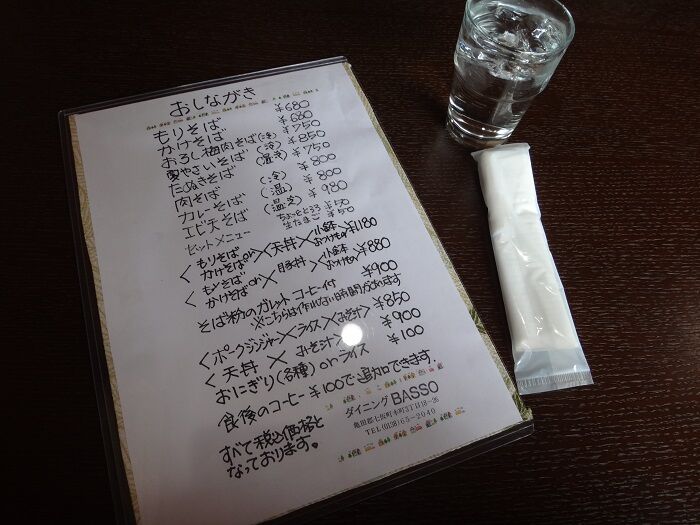 おしながき
もりそば ¥680
かけそば ¥680
おろし梅肉そば(冷) ¥750
夏やさいそば(冷) ¥850
たぬきそば (温冷) ¥750
肉そば (冷) ¥800
カレーそば (温) ¥800
エビ天そば (温冷) ¥980
ちょっとところ ¥50
生たまご ¥50
セットメニュー
もりそば or かけそば × 天丼 × 小鉢 おつけもの ¥1180
もりそば or かけそば × 豚丼 × 小鉢 おつけもの ¥880
そば粉のガレット コーヒー付 ¥900
※こちらは作れない時間があります
ポークジンジャー × ライス × みそ汁 ¥850
天丼 × みそ汁 ¥900
おにぎり(各種) or ライス ¥100
食後のコーヒー ¥100で追加できます。
すべて税込価格と
なっております。
ダイニング BASSO
亀田郡七飯町本町3丁目18-26
TEL(0138)65-2040